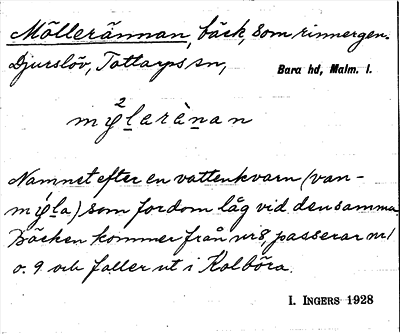 Möllerännan, bäck, som rinner gen.
Djurslöv, Tottarps sn,
Bara hd, Malm. l.
Namnet efter en vattenkvarn (van-
la) som fordom låg vid densamma.
Bäcken kommer från nr 8, passerar nr 1
o. 9 och faller ut i Kalböra.
I. INGERS 1928